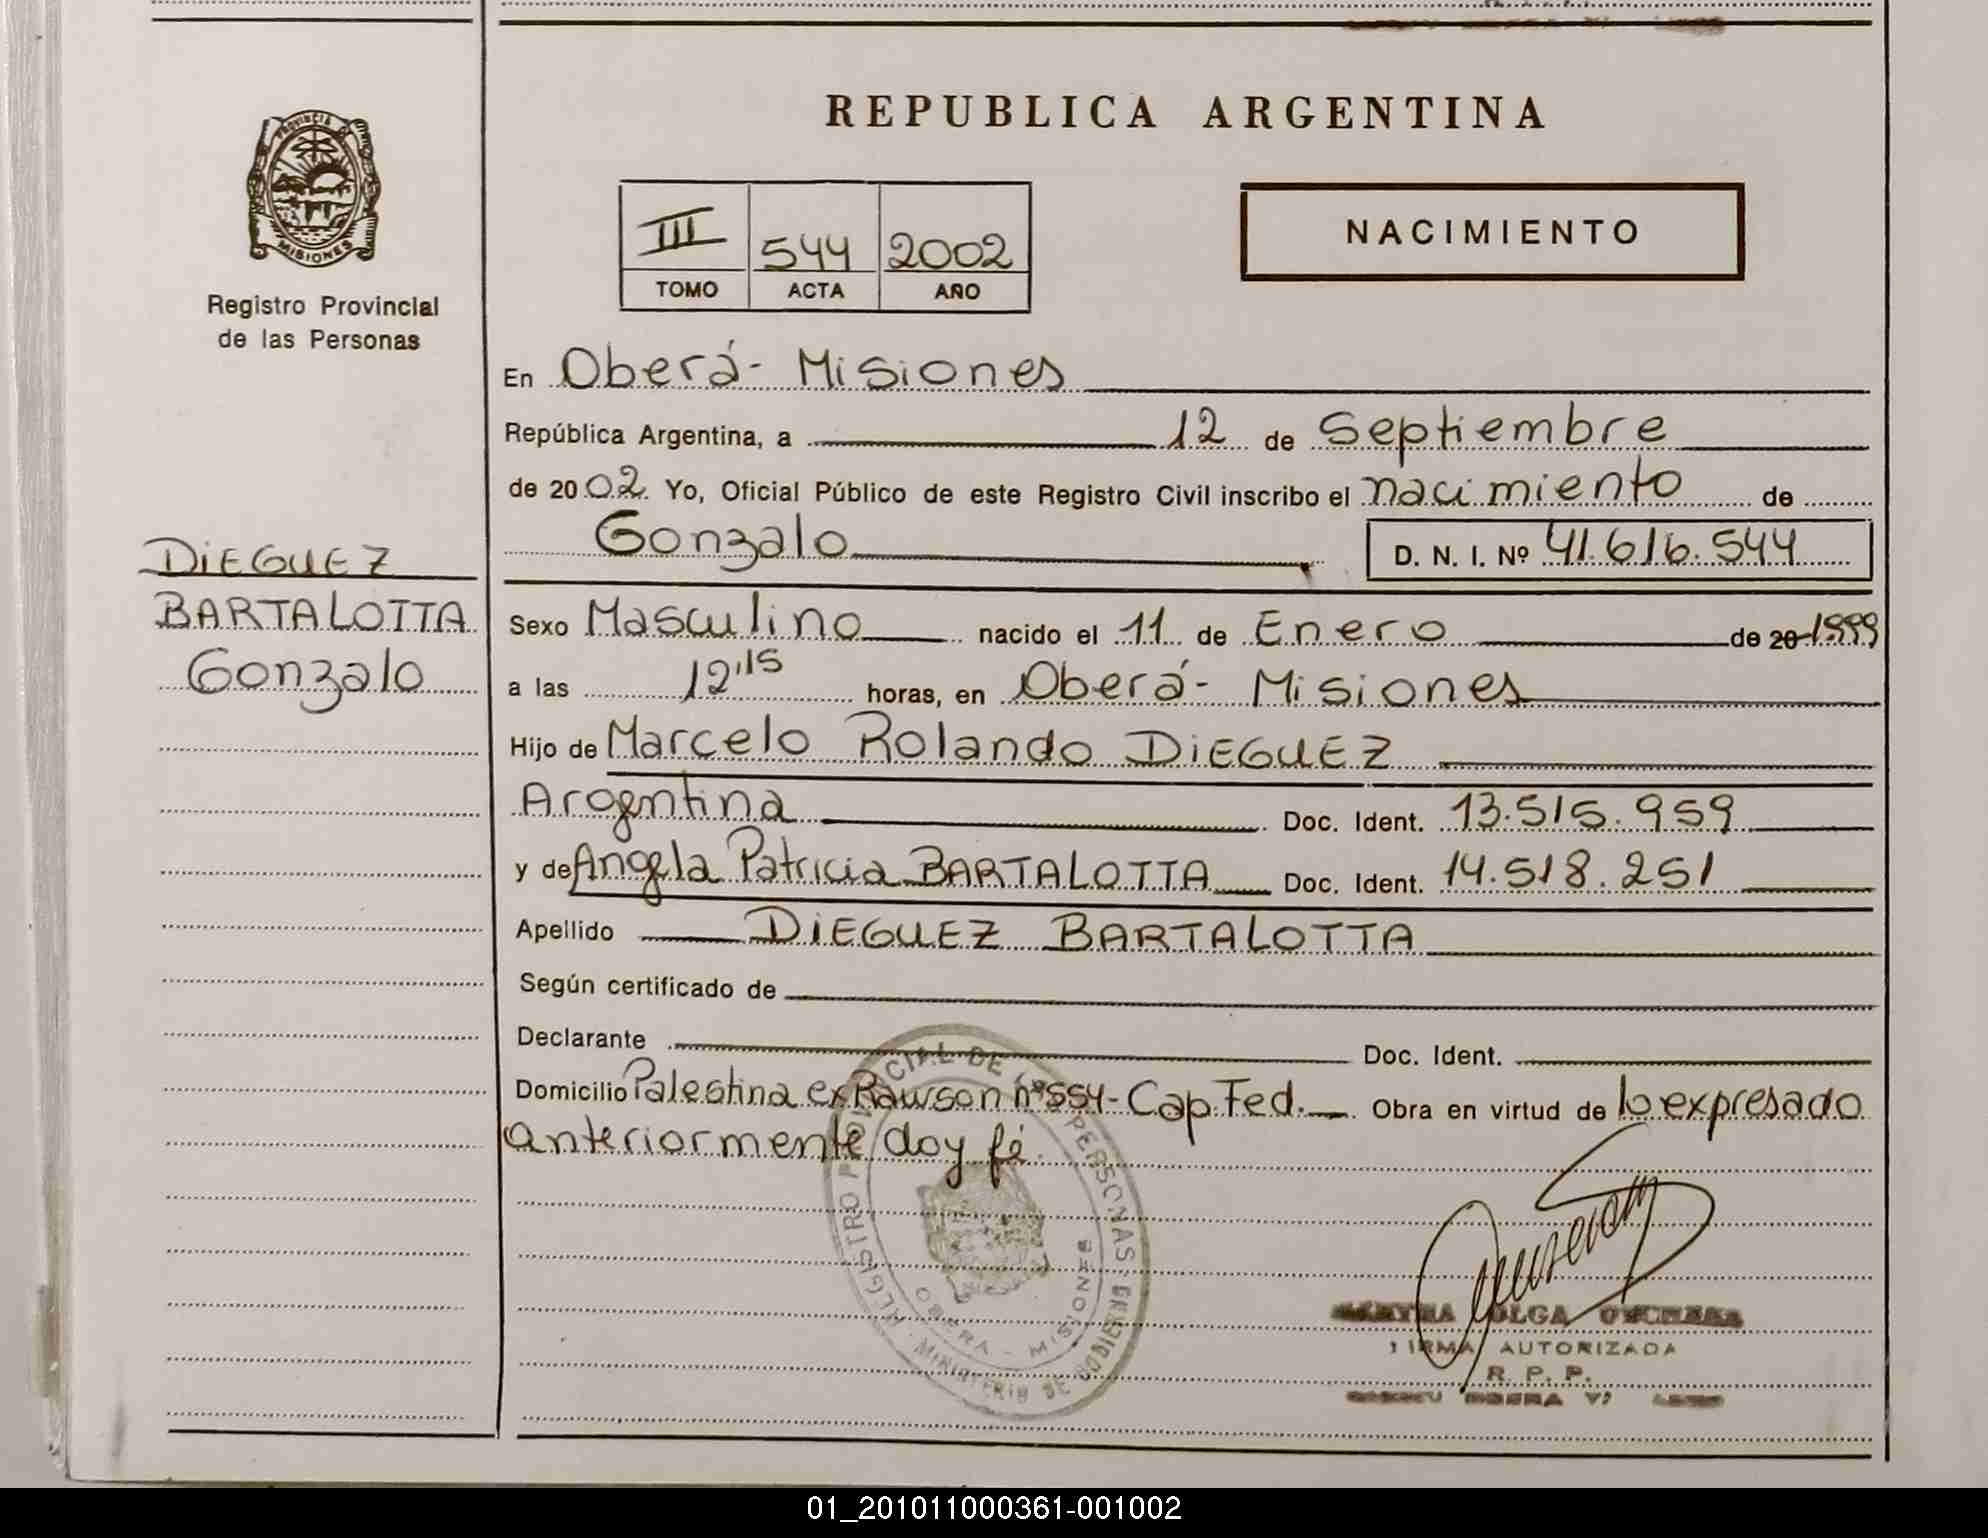 REPUBLICA ARGENTINA
PROVINCIA DE
MISIONES
Registro Provincial
de las Personas
III 544 2002
TOMO ACTA AÑO
NACIMIENTO
En Oberá - Misiones
República Argentina, a 12 de Septiembre
de 2002. Yo, Oficial Público de este Registro Civil inscribo el nacimiento de
Gonzalo D. N. I. Nº 41.616.544
DIEGUEZ
BARTALOTTA
Gonzalo
Sexo Masculino nacido el 11 de Enero de 20 1999
a las 12,15 horas, en Oberá - Misiones
Hijo de Marcelo Rolando DIEGUEZ
Argentina Doc. Ident. 13.515.959
y de Angela Patricia BARTALOTTA Doc. Ident. 14.518.251
Apellido DIEGUEZ BARTALOTTA
Según certificado de
Declarante Doc. Ident.
Domicilio Palestina ex Rawson nº 554 - Cap. Fed. Obra en virtud de lo expresado
anteriormente doy fé.
REGISTRO PROVINCIAL DE LAS PERSONAS
MINISTERIO DE GOBIERNO
OBERA - MISIONES
OLGA
FIRMA AUTORIZADA
R. P. P.
01_201011000361-001002